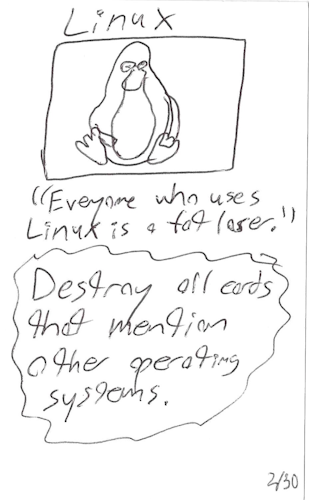 Linux
"Everyone who uses
Linux is a fat loser."
Destroy all cards
that mention
other operating
systems.
2/30